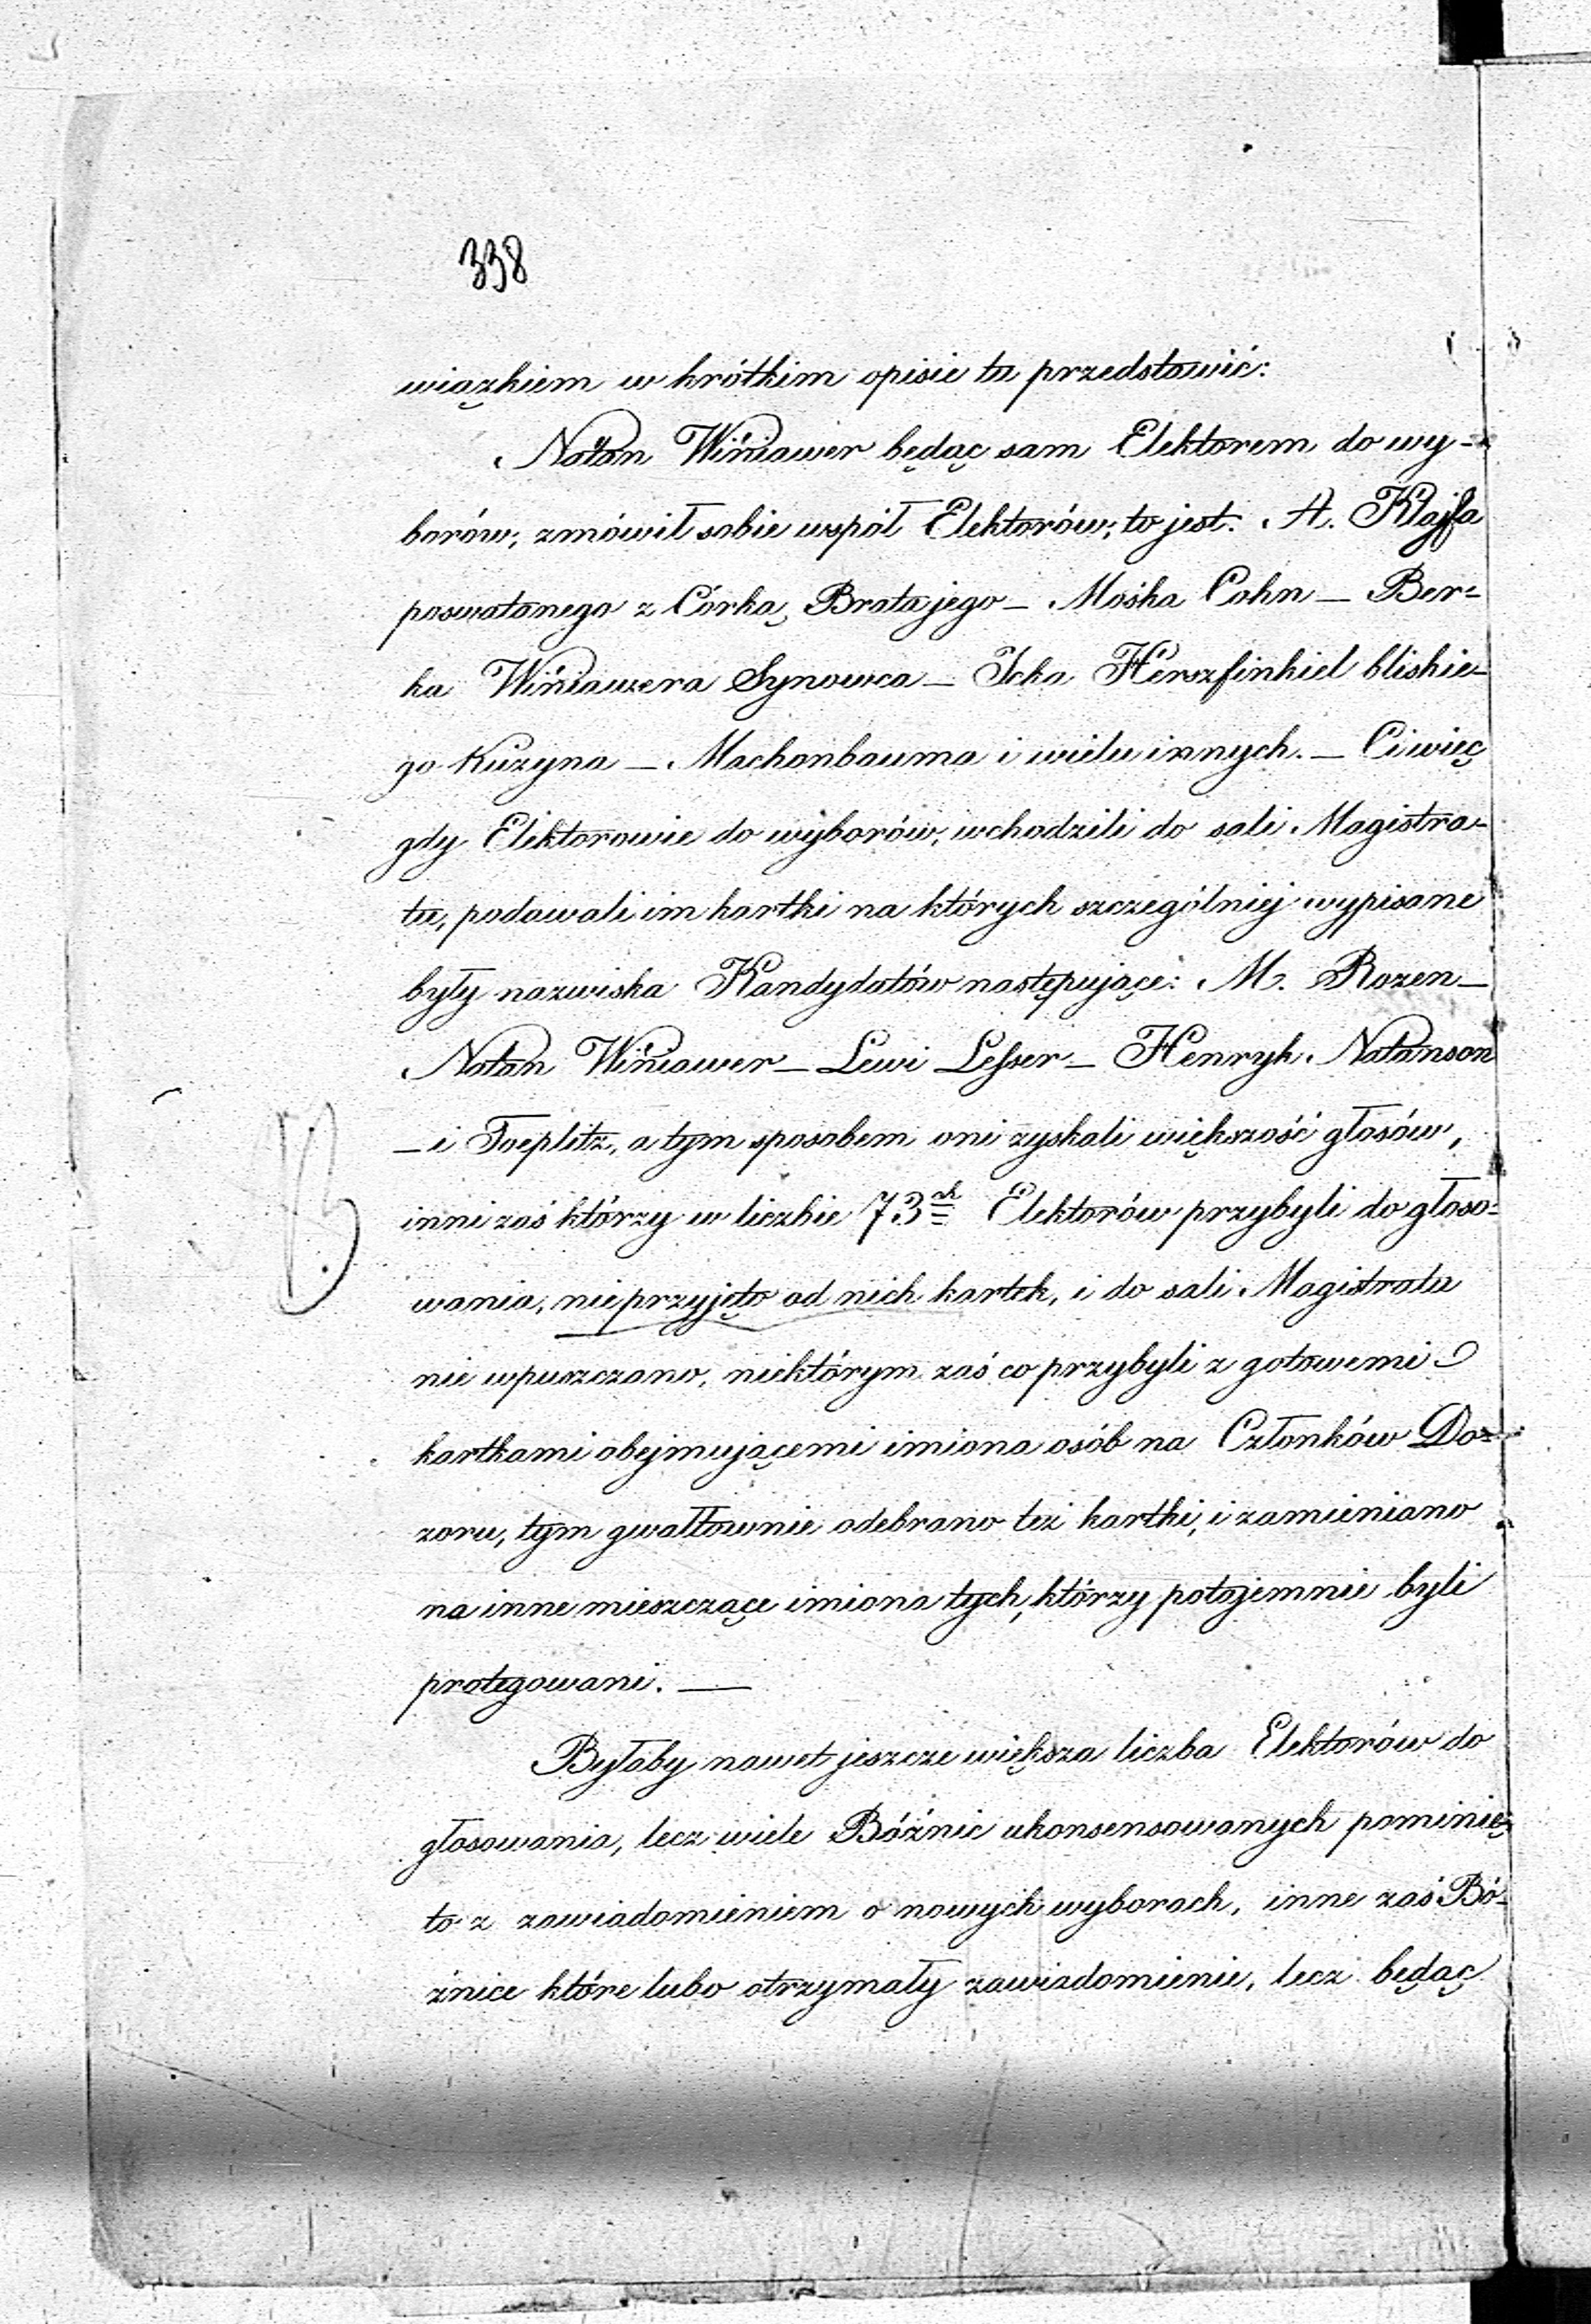 338
wiązkiem w krótkim opisie tu przedstawić:
Natan Winiawer będąc sam Elektorem do wy-
borów, zmówił sobie wspól Elektorów; to jest: A. Klajfa
poswatanego z Córką Brata jego – Mośka Cohn – Ber-
ka Winiawera Synowca – Icka Herszfinkiel bliskie-
go Kuzyna – Machonbauma i wielu innych. – Ci więc
gdy Elektorowie do wyborów, wchodzili do sali Magistra-
tu, podawali im kartki na których szczególniej wypisane
były nazwiska Kandydatów następujące: M. Rozen –
Natan Winiawer – Lewi Lesser – Henryk Natanson
– i Toeplitz, a tym sposobem oni zyskali większość głosów,
inni zaś którzy w liczbie 73ch Elektorów przybyli do głoso-
wania, nie przyjęto od nich kartek, i do sali Magistratu
nie wpuszczano, niektórym zaś co przybyli z gotowemi
kartkami obejmującemi imiona osób na Członków Do-
zoru, tym gwałtownie odebrano też kartki, i zamieniano
na inne mieszczące imiona tych, którzy potajemnie byli
protegowani. —
Byłaby nawet jeszcze większa liczba Elektorów do
głosowania, lecz wiele Bóźnic ukonsensowanych pominię-
to z zawiadomieniem o nowych wyborach, inne zaś Bó-
źnice które lubo otrzymały zawiadomienie, lecz będąc